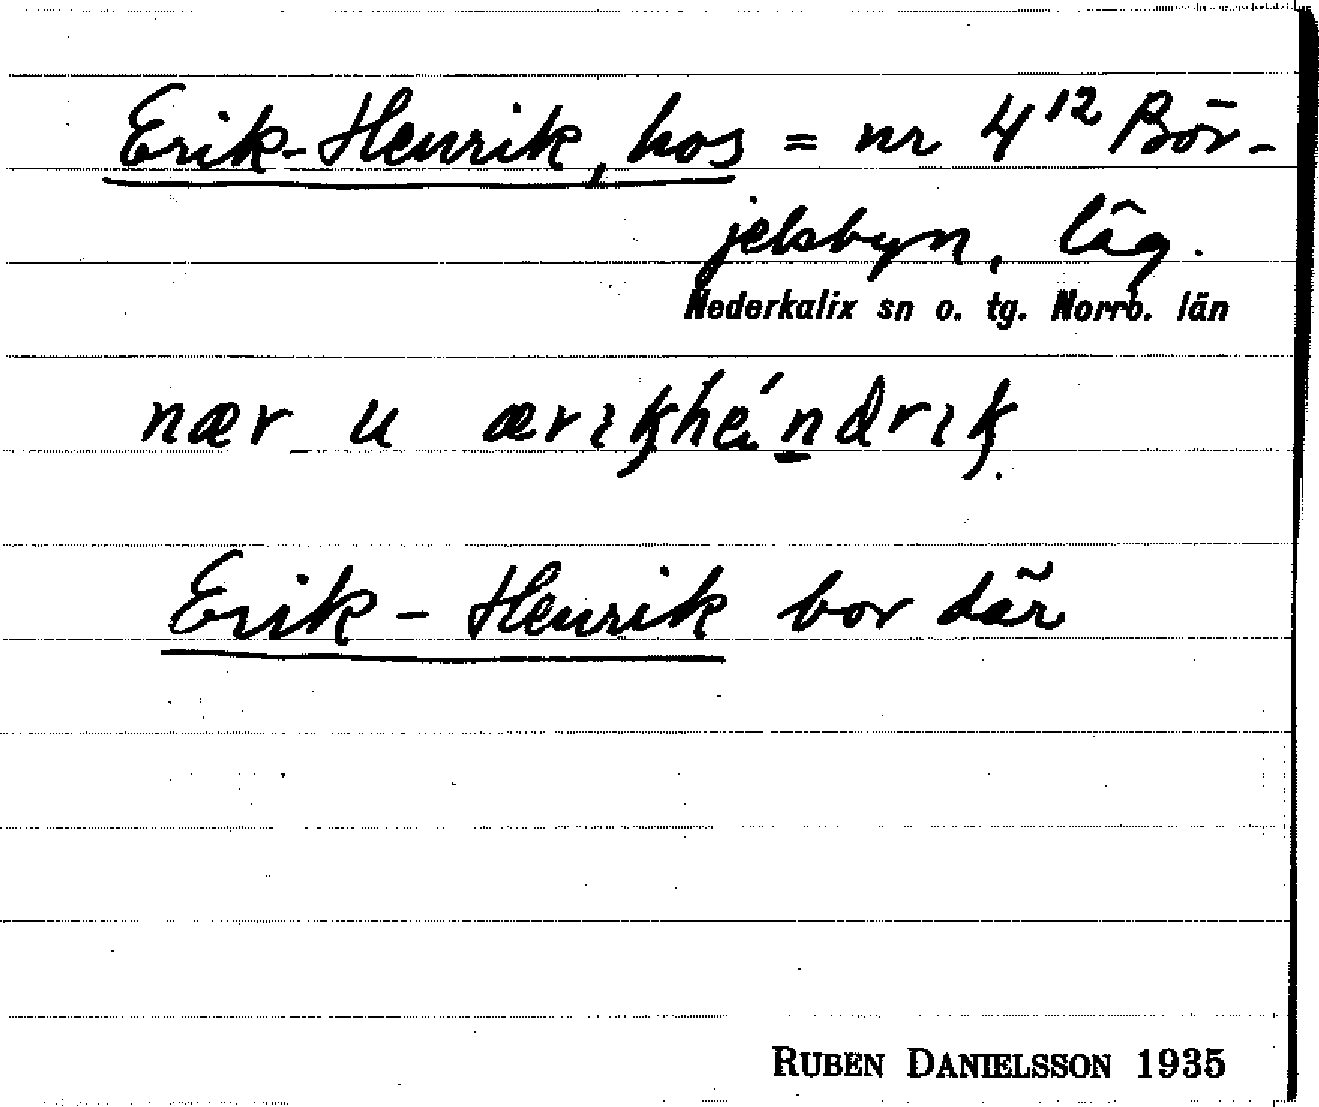 Erik-Henrik, hos = nr 4¹² Bör-
jelsbyn, läg.
Nederkalix sn o. tg. Norrb. län
nær u ærıkhéndrık
Erik-Henrik bor där
RUBEN DANIELSSON 1935